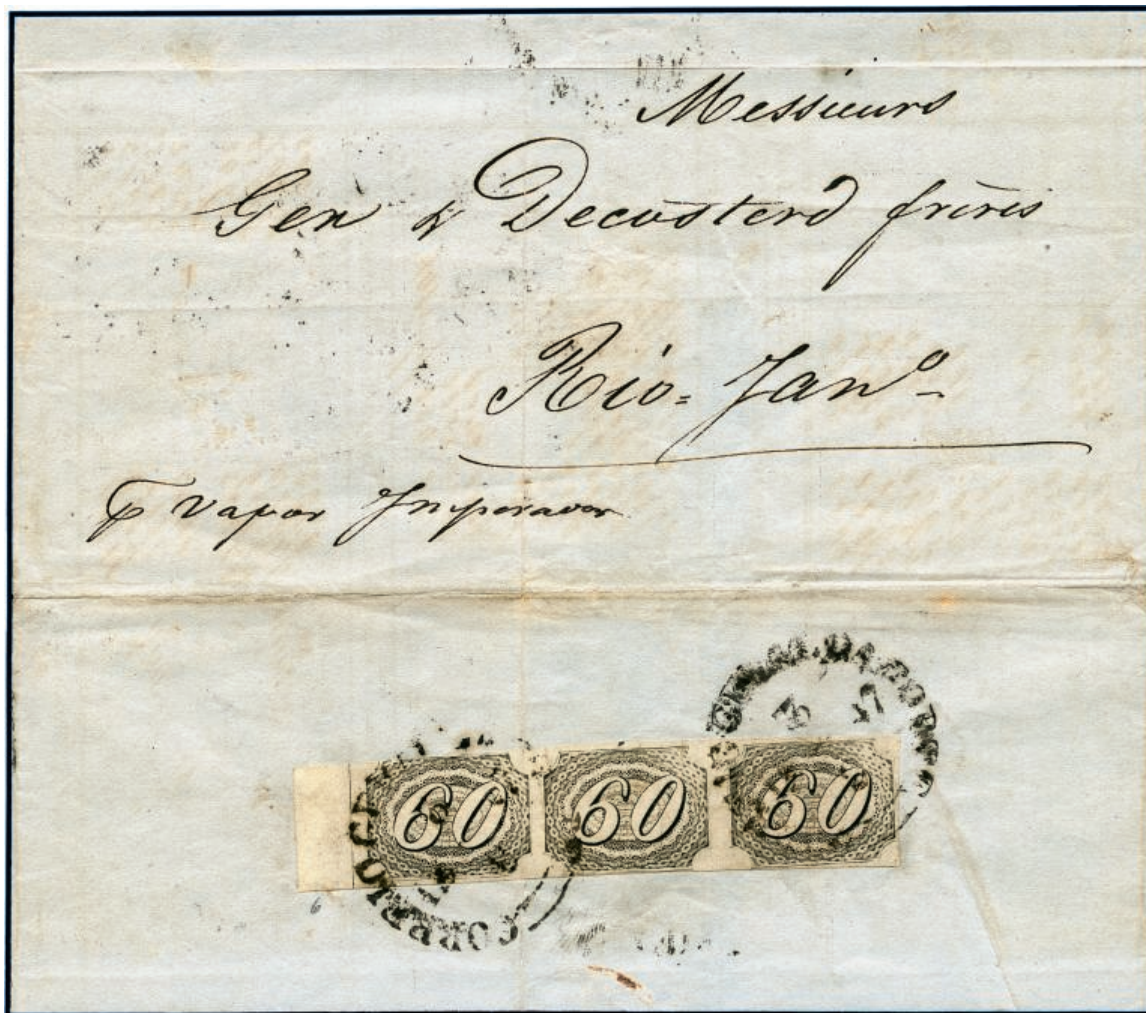 Messieurs
Gex & Decosterd frères
Rio=Jan.o
P vapor Imperador
60 60 60
CORREIO GE